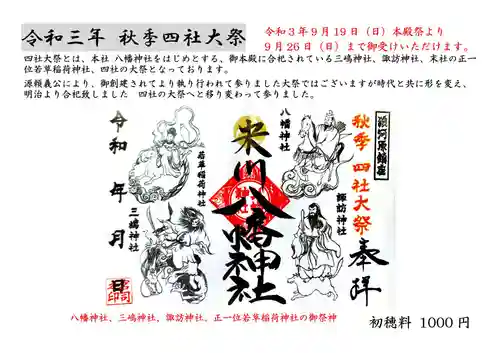 令和三年 秋季四社大祭
令和3年9月19日(日)本殿祭より
9月26日(日)まで御受けいただけます。
四社大祭とは、本社 八幡神社をはじめとする、御本殿に合祀されている三嶋神社、諏訪神社、末社の正一
位若草稲荷神社、四社の大祭となっております。
源頼義公により、御創建されてより執り行われて参りました大祭ではございますが時代と共に形を変え、
明治より合祀致しました 四社の大祭へと移り変わって参りました。
秋季四社大祭
奉拝
八幡神社
諏訪神社
八幡神社
若草稲荷神社
三嶋神社
令和 年 月 日
八幡神社、三嶋神社、諏訪神社、正一位若草稲荷神社の御祭神
初穂料 1000円